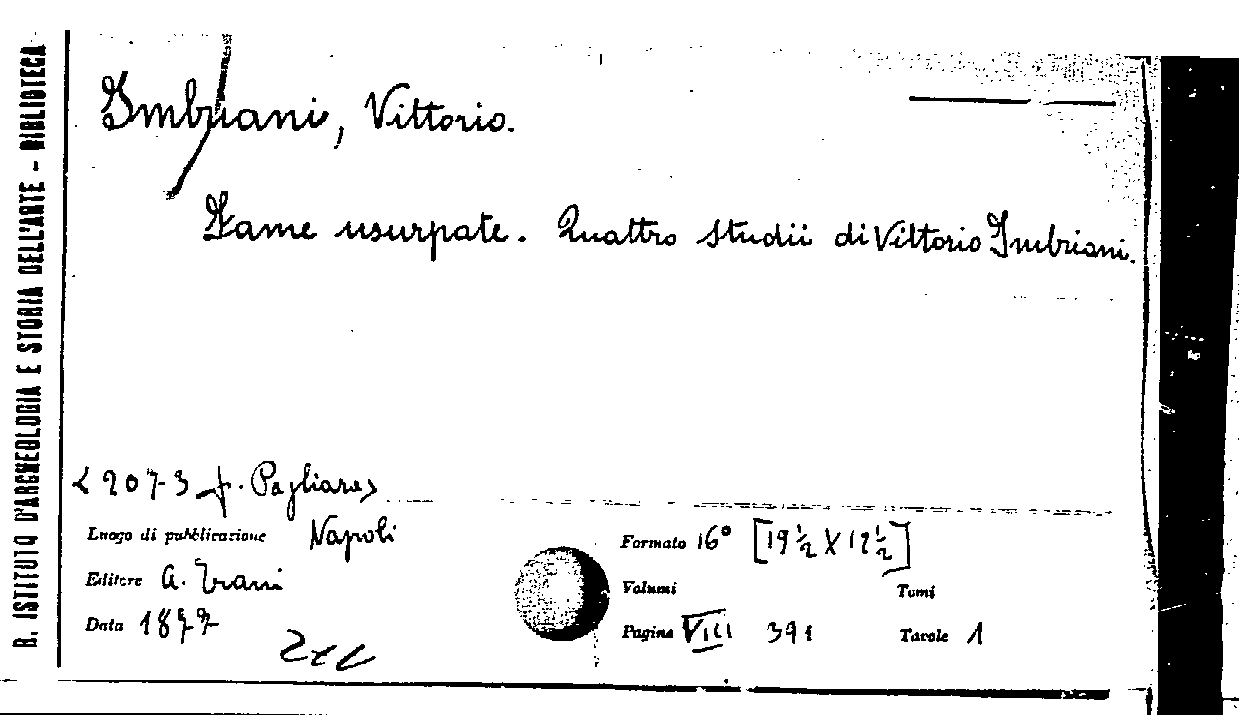 R. ISTITUTO D'ARCHEOLOGIA E STORIA DELL'ARTE - BIBLIOTECA
Imbriani, Vittorio.
Fame usurpate. Quattro studii di Vittorio Imbriani.
<2073 f. Pagliara>
Luogo di pubblicazione Napoli
Formato 16° [19 ½ X 12 ½]
Editore A. Trani
Volumi Tomi
Data 1877
Pagine VIII 391 Tavole 1